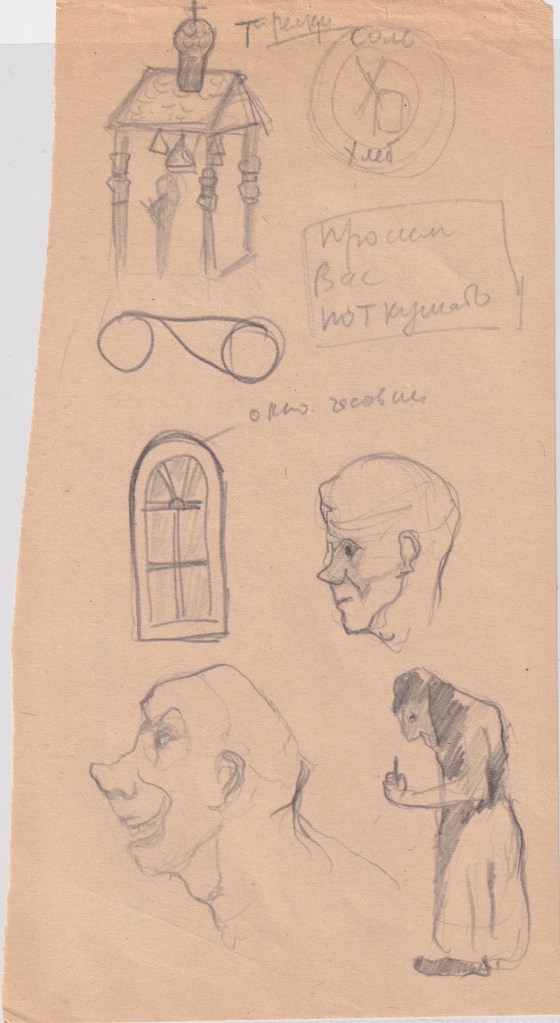 Тарелки
соль
ХВ
хлеб
Просим
Вас
поткушать
окно часовни